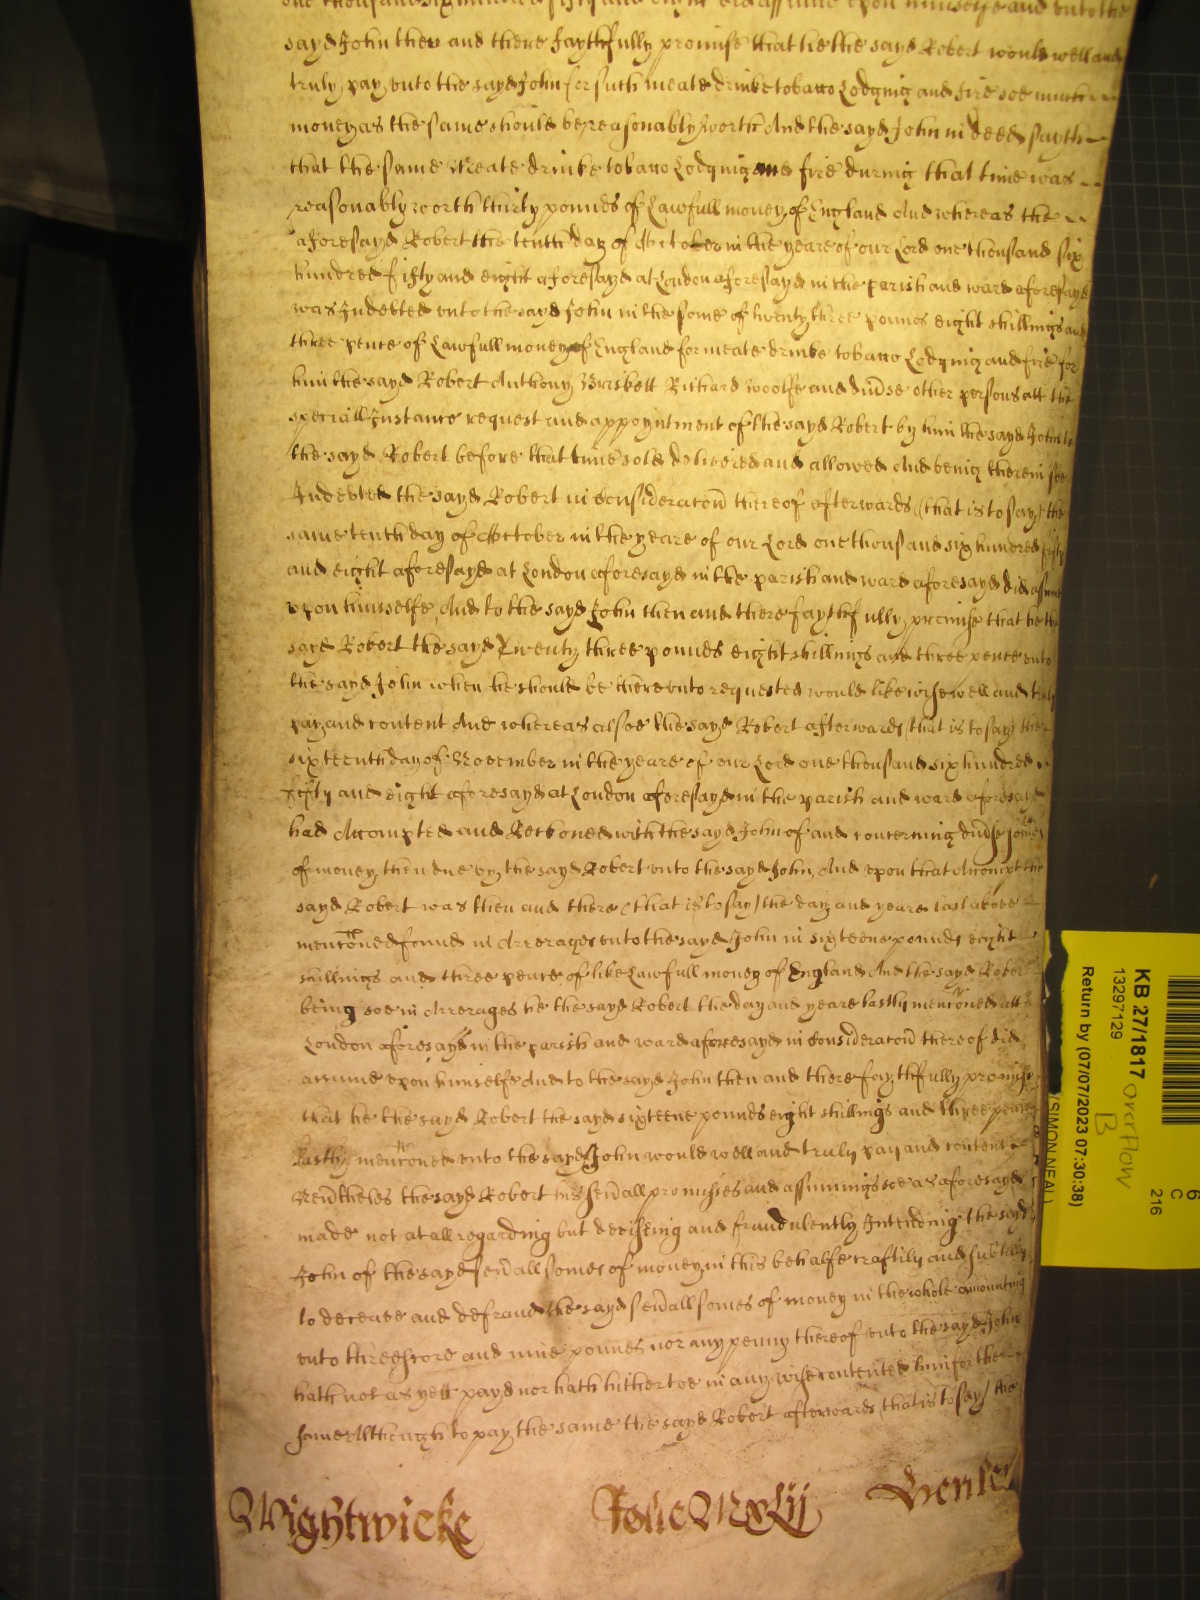 one thousand six hundred fifty and eight did assume upon himselfe and unto the
sayd John then and there faythfully promise that he the sayd Robert would well and
truly pay unto the sayd John for such meate drinke tobacco Lodging and fire soe much
money as the same should be reasonably worth And the sayd John in deed sayth
that the same Meate drinke tobacco Lodging and fire during that time was
reasonably worth thirty pounds of Lawfull money of England And whereas the
aforesayd Robert the tenth day of October in the yeare of our Lord one thousand six
hundred fifty and eight aforesayd at London aforesayd in the parish and ward aforesayd
was Indebted unto the sayd John in the some of twenty three pounds eight shillings and
three pence of Lawfull money of England for meate drinke tobacco Lodging and fire for
him the sayd Robert Anthony Brisbett Richard Woolfe and div̄se other persons att the
speciall Instance request and appoyntment of the sayd Robert by him the sayd John to
the sayd Robert before that time sold delivered and allowed And being therein soe
Indebted the sayd Robert in Consideraton̄ thereof afterwards (that is to say) the
same tenth day of October in the yeare of our Lord one thousand six hundred fifty
and eight aforesayd at London aforesayd in the parish and ward aforesayd did assume
upon himselfe And to the sayd John then and there faythfully promise that he the
sayd Robert the sayd Twenty three pounds eight shillings and three pence unto
the sayd John when he should be thereunto requested would likewise well and truly
pay and content And whereas alsoe the sayd Robert afterwards (that is to say) the
sixteenth day of November in the yeare of our Lord one thousand six hundred
Fifty and eight aforesayd at London aforesayd in the parish and ward aforesayd
had Accompted and Reckoned with the sayd John of and concerning div̄se somes
of money then due by the sayd Robert unto the sayd John And upon that Accompt the
sayd Robert was then and there (that is to say) the day and yeare last above
menc̄oned found in Arrerages unto the sayd John in sixteene pounds eight
shillings and three pence of like Lawfull money of England And the sayd Robert
being soe in Arrerages he the sayd Robert the day and yeare lastly menc̄oned att
London aforesayd in the parish and ward aforesayd in Consideraton̄ thereof did
assume upon himselfe And to the sayd John then and there faythfully promise
that he the sayd Robert the sayd sixteene pounds eight shillings and three pence
Lastly menc̄oned unto the sayd John would well and truly pay and content
Nev̄theles the sayd Robert his sev̄all promisses and assumings soe as aforesayd
made not at all regarding but deviseing and fraudulently Intending the sayd
John of the sayd sev̄all somes of money in this behalfe craftily and subtilly
to deceave and defraud the sayd sev̄all somes of money in the whole amounting
unto threescore and nine pounds nor any penny thereof unto the sayd John
hath not as yett payd nor hath hithertoe in any wise contented him for the
same Although to pay the same the sayd Robert afterwards (that is to say) the
Wightwicke
KB 27/1817
13297129
Return by (07/07/2023 07:30:38)
(SIMON NEAL)
overflow
B
6
C
216